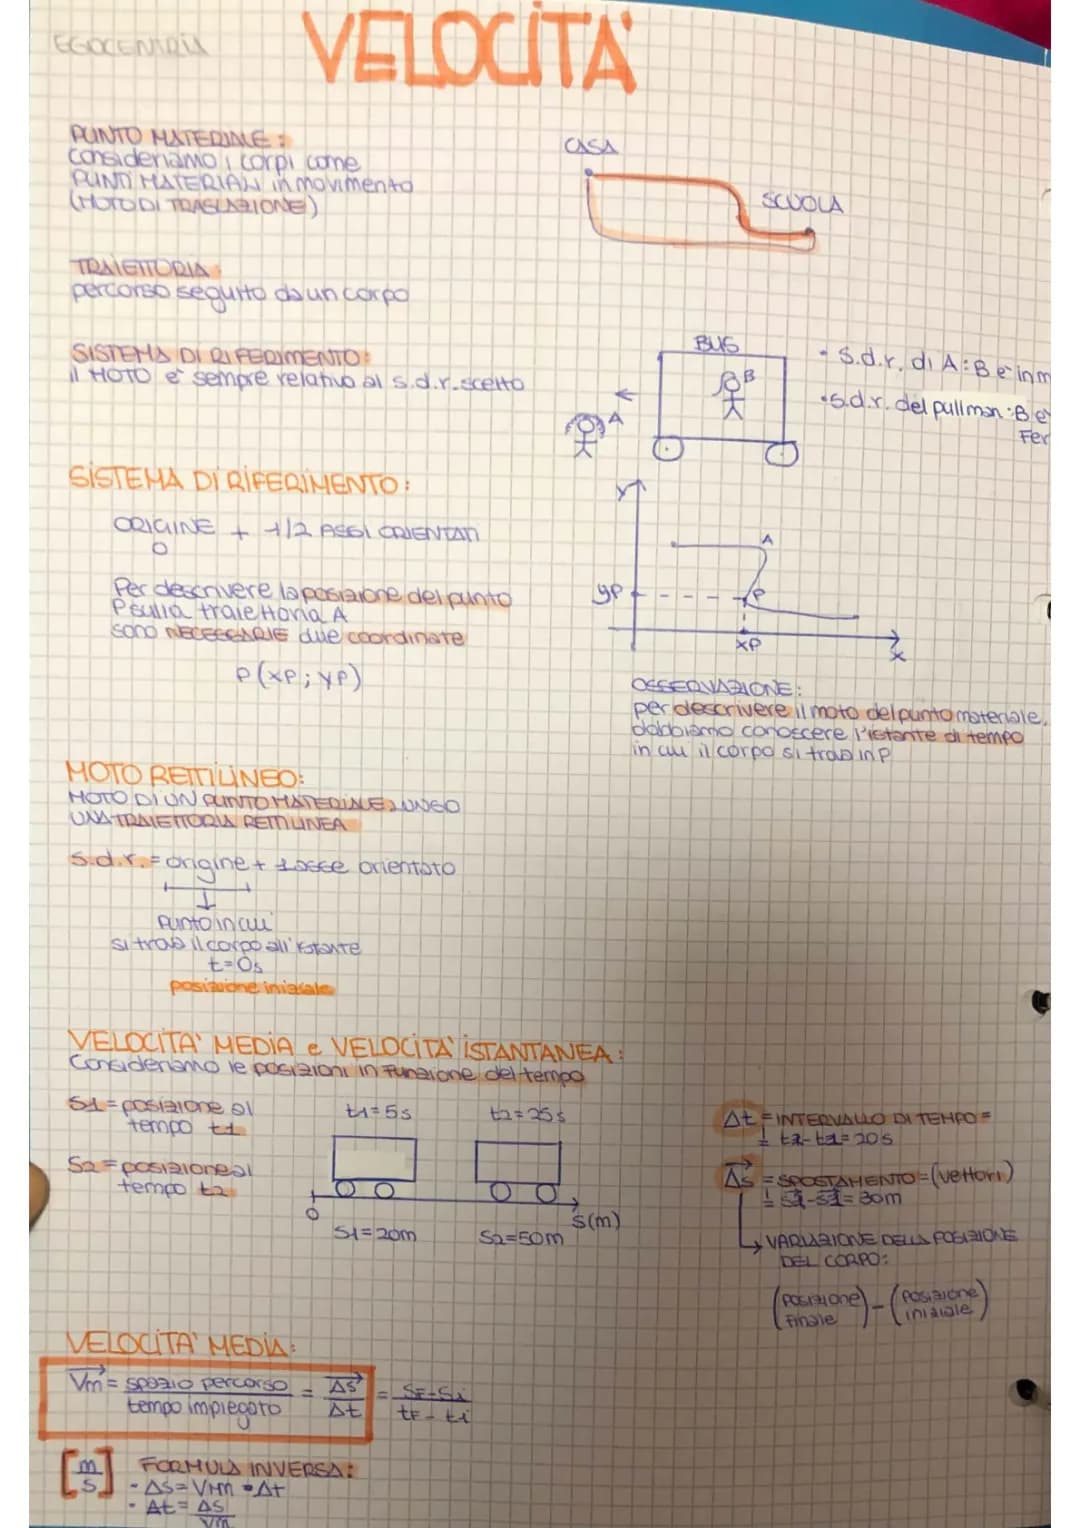 VELOCITA'
PUNTO MATERIALE:
consideriamo i corpi come
PUNTI MATERIALI in movimento
(MOTO DI TRASLAZIONE)
CASA
SCUOLA
TRAIETTORIA:
percorso seguito da un corpo
SISTEMA DI RIFERIMENTO:
il MOTO e' sempre relativo al s.d.r. scelto
BUS
B
A
- s.d.r. di A: B e' in m
• s.d.r. del pullman: B e'
Fer
SISTEMA DI RIFERIMENTO:
ORIGINE + 1/2 ASSI ORIENTATI
O
Per descrivere la posizione del punto
P sulla traiettoria A
sono NECESSARIE due coordinate
P(xP; yP)
y
A
yP
P
xP
x
OSSERVAZIONE:
per descrivere il moto del punto materiale,
dobbiamo conoscere l'istante di tempo
in cui il corpo si trova in P
MOTO RETTILINEO:
MOTO DI UN PUNTO MATERIALE LUNGO
UNA TRAIETTORIA RETTILINEA
s.d.r. = origine + 1 asse orientato
Punto in cui
si trova il corpo all'istante
t=0s
posizione iniziale
VELOCITA' MEDIA e VELOCITA' ISTANTANEA:
Consideriamo le posizioni in funzione del tempo
S1 = posizione al
tempo t1
S2 = posizione al
tempo t2
t1=5s
t2=25s
O
S(m)
S1=20m
S2=50m
Δt = INTERVALLO DI TEMPO =
= t2-t1= 20s
Δs = SPOSTAMENTO = (vettori)
= S2-S1= 30m
VARIAZIONE DELLA POSIZIONE
DEL CORPO:
(posizione finale) - (posizione iniziale)
VELOCITA' MEDIA:
Vm = spazio percorso / tempo impiegato = ΔS / Δt = SF-Si / tF-ti
[m/s] FORMULA INVERSA:
- ΔS = Vm • Δt
- Δt = ΔS / Vm